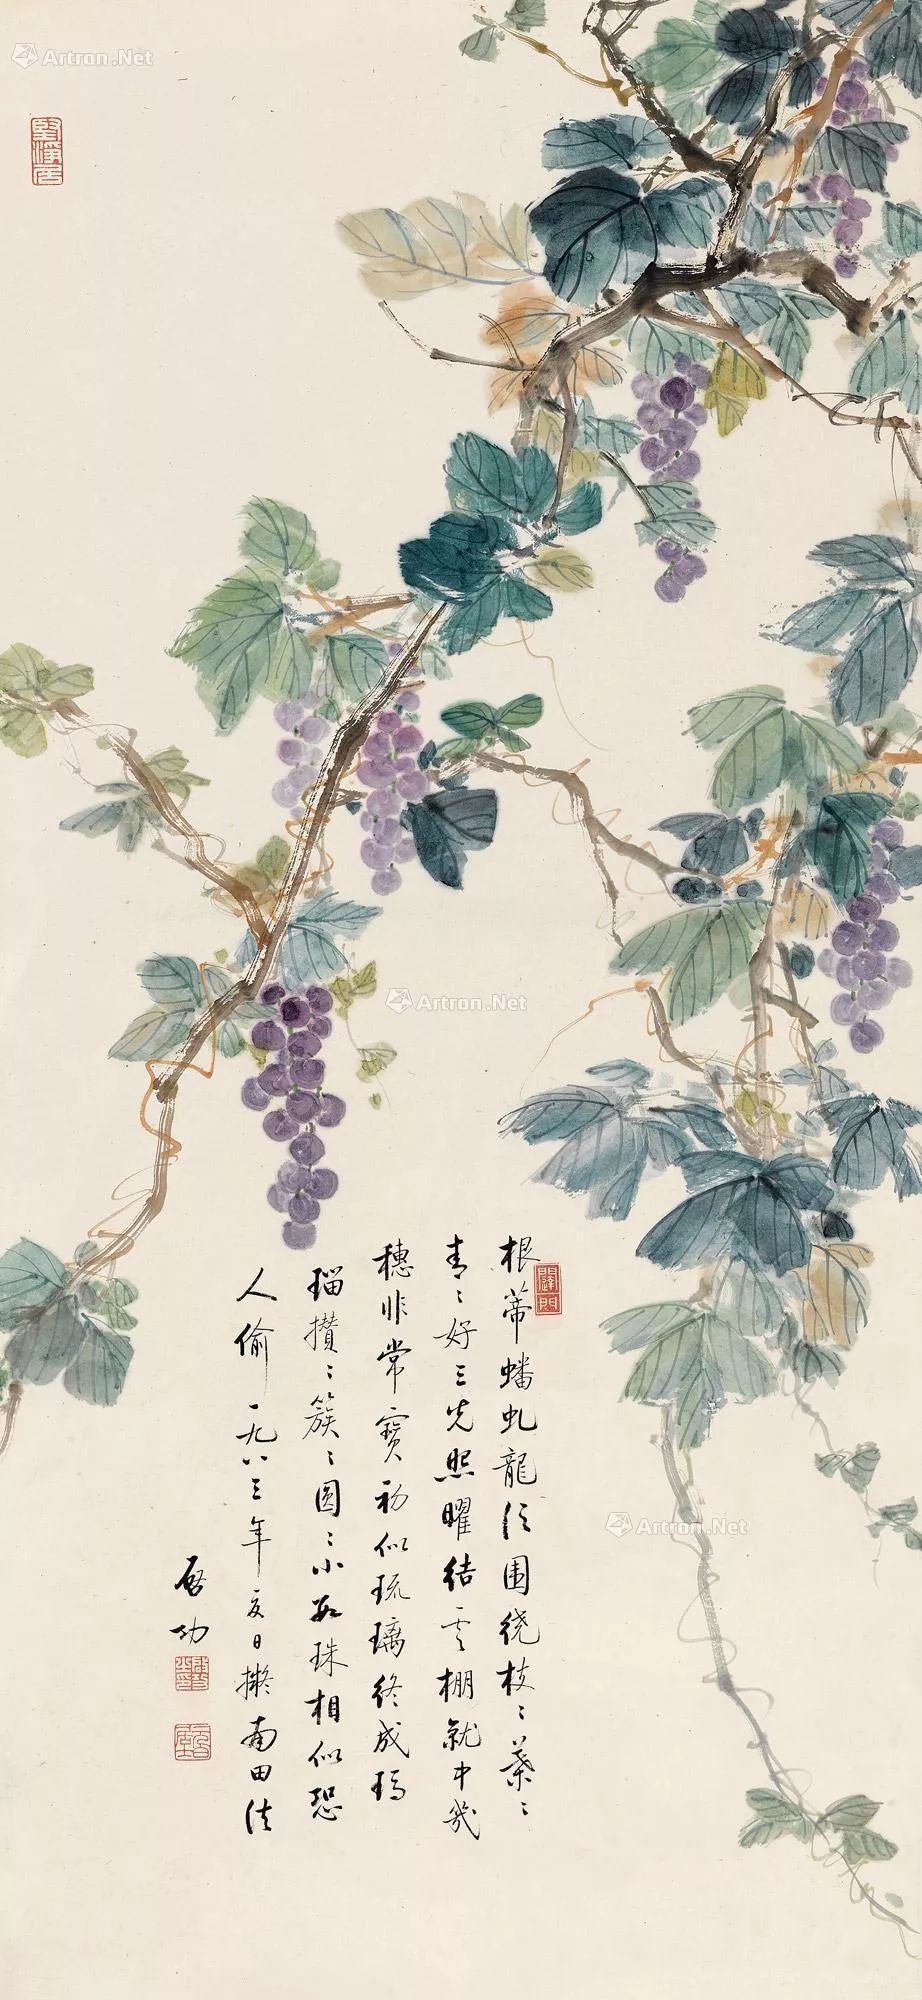 Artron.Net
堅淨居
Artron.Net
根蒂蟠虬龍须圍绕枝〻葉〻
青〻好三光照曜结雲棚就中幾
穗非常寶初似琉璃终成瑪
瑙攢〻簇〻圆〻小數珠相似恐
人偷一九八三年夏日擬南田法
启功
Artron.Net